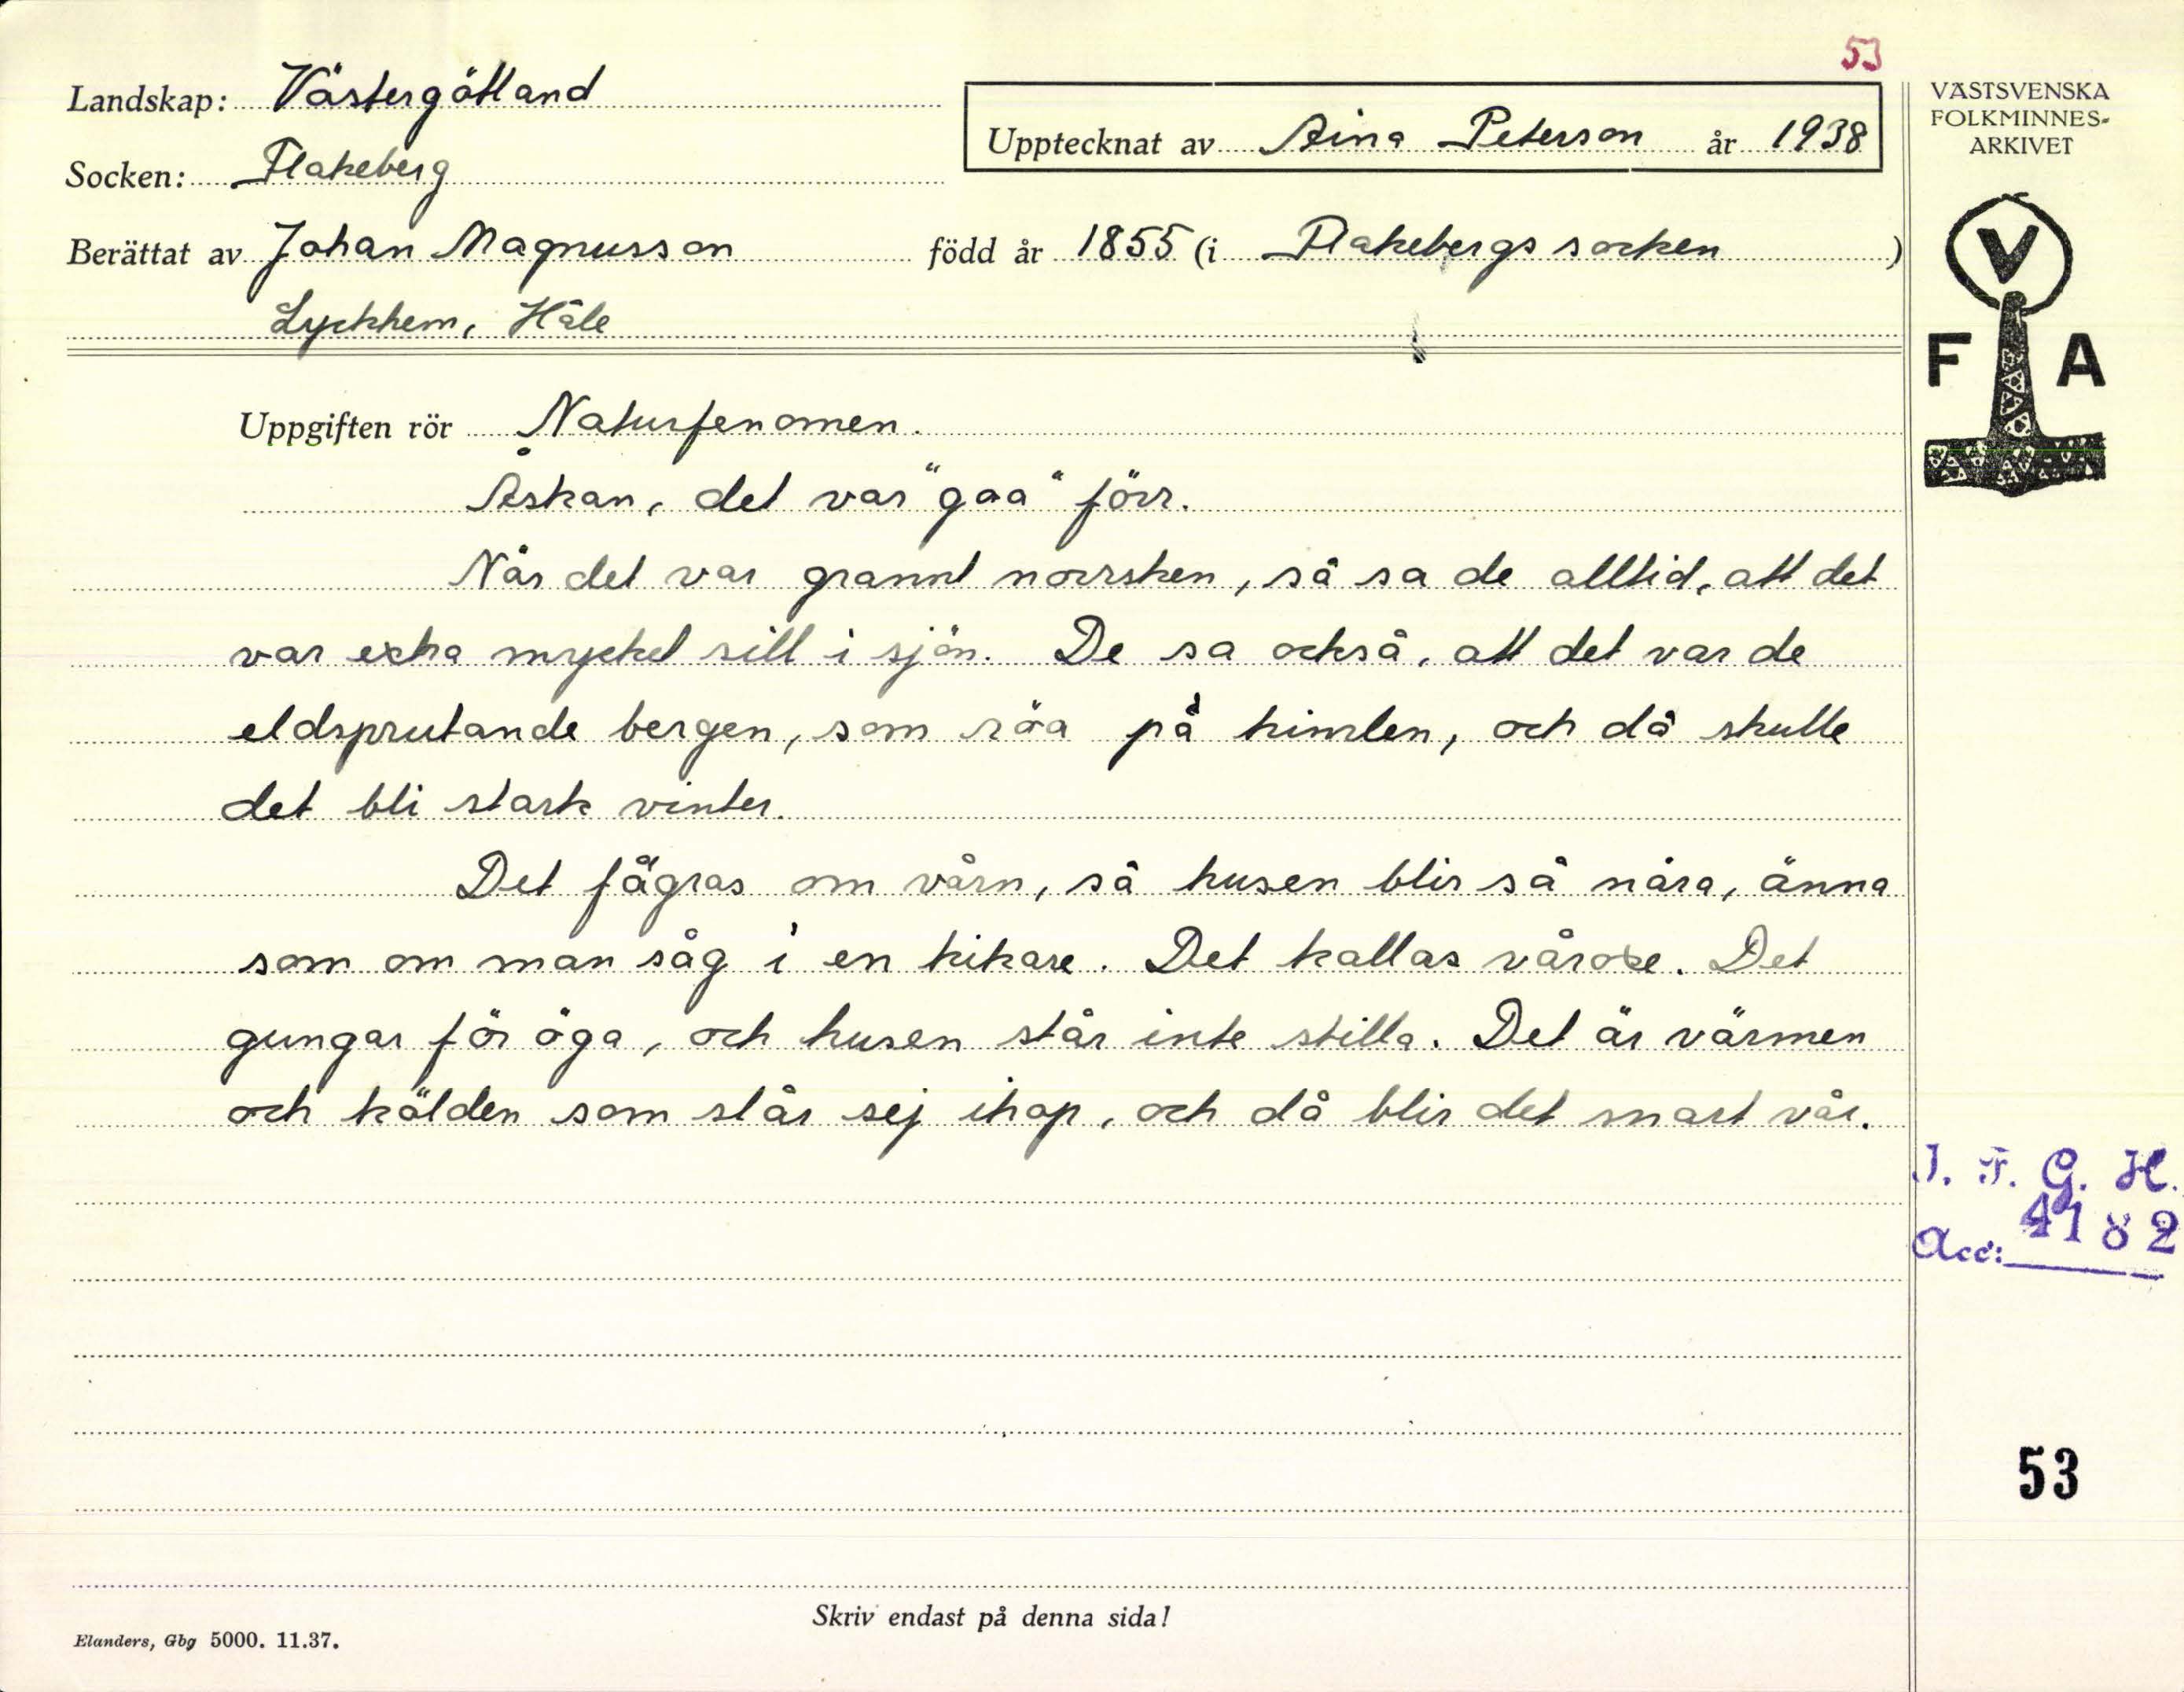 53
Landskap: Västergötland
Upptecknat av Aina Peterson år 1938
Socken: Flakeberg
Berättat av Johan Magnusson född år 1855 (i Flakebergs socken )
Lyckhem, Håle
VÄSTSVENSKA
FOLKMINNES-
ARKIVET
V
F A
Uppgiften rör Naturfenomen.
Åskan, det var "gaa" förr.
När det var grannt norrsken, så sa de alltid, att det
var extra mycket sill i sjön. De sa också, att det var de
eldsprutande bergen, som röa på himlen, och då skulle
det bli stark vinter.
Det fägras om vårn, så husen blir så nära, änna
som om man såg i en kikare. Det kallas Det
gungar för öga, och husen står inte stilla. Det är värmen
och kölden som slår sej ihop, och då blir det snart vår.
I. F. G. H.
Acc: 4182
53
Skriv endast på denna sida!
Elanders, Gbg 5000. 11.37.